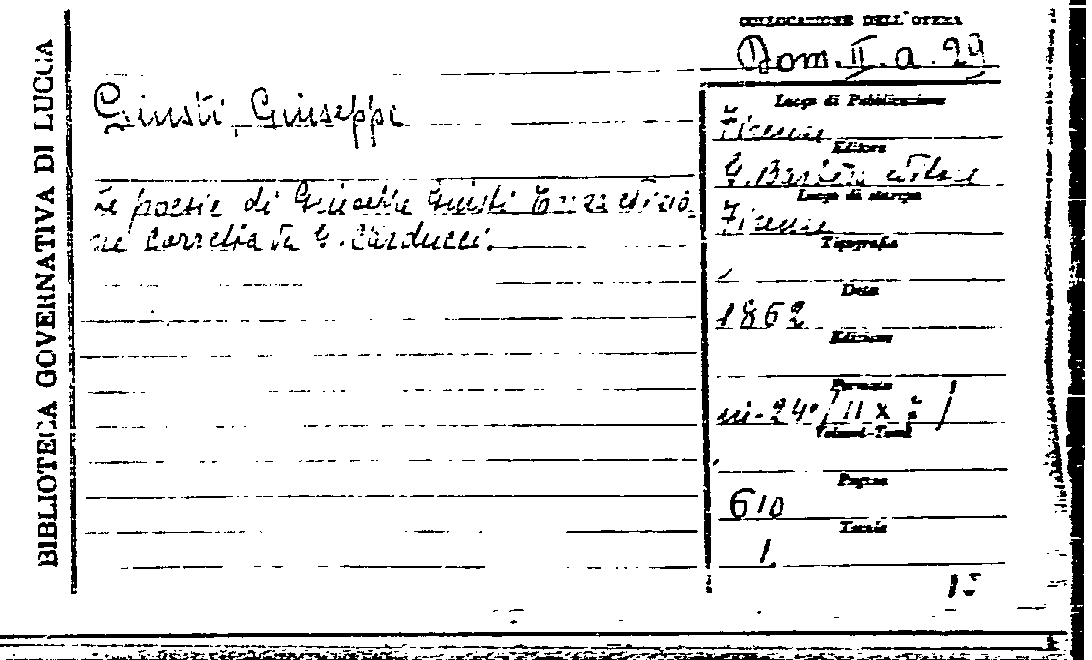 BIBLIOTECA GOVERNATIVA DI LUCCA
COLLOCAZIONE DELL'OPERA
Dom. II. a. 29
Giusti, Giuseppe
Le poesie di Giuseppe Giusti Terza edizio-
ne corretta da G. Carducci.
Luogo di Pubblicazione
Firenze
Editore
G. Barbèra editore
Luogo di stampa
Firenze
Tipografia
Data
1862
Edizione
Formato
in-24° / 11 x
Volumi-Tomi
Pagine
610
Tavole
1.